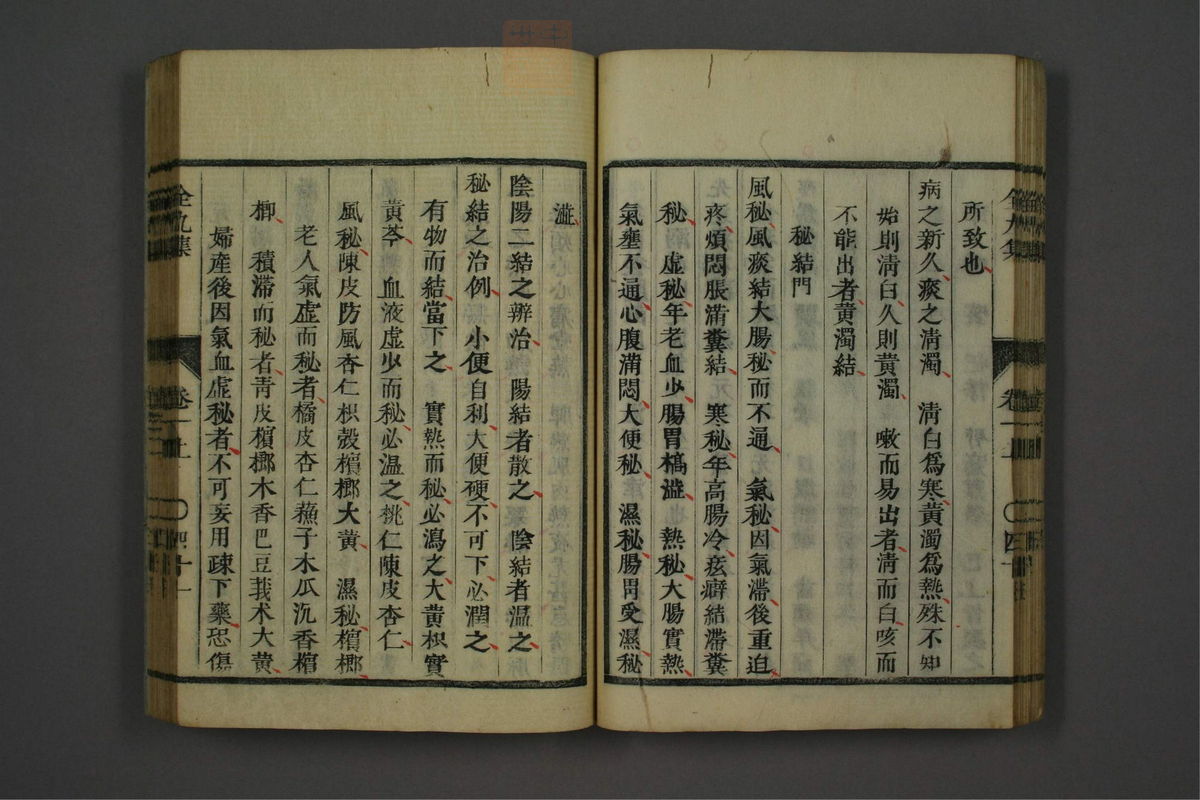 所致也
病之新久痰之清濁　清白爲寒黃濁爲熱殊不知
始則清白久則黃濁　嗽而易出者清而白咳而
不能出者黃濁結
秘結門
風秘風痰結大腸秘而不通　氣秘因氣滯後重迫
疼煩悶脹滿糞結　寒秘年高腸冷痃癖結滯糞
秘　虛秘年老血少腸胃槁澁　熱秘大腸實熱
氣壅不通心腹滿悶大便秘　濕秘腸胃受濕秘
澁
陰陽二結之辨治　陽結者散之　陰結者溫之
秘結之治例　小便自利大便硬不可下必潤之
有物而結當下之　實熱而秘必瀉之大黃枳實
黃芩　血液虛少而秘必溫之桃仁陳皮杏仁
風秘陳皮防風杏仁枳殼檳榔大黃　濕秘檳榔
老人氣虛而秘者橘皮杏仁蘓子木瓜沉香檳
榔　積滯而秘者靑皮檳榔木香巴豆莪朮大黃
婦產後因氣血虛秘者不可妄用疎下藥恐傷
全九集
卷二上